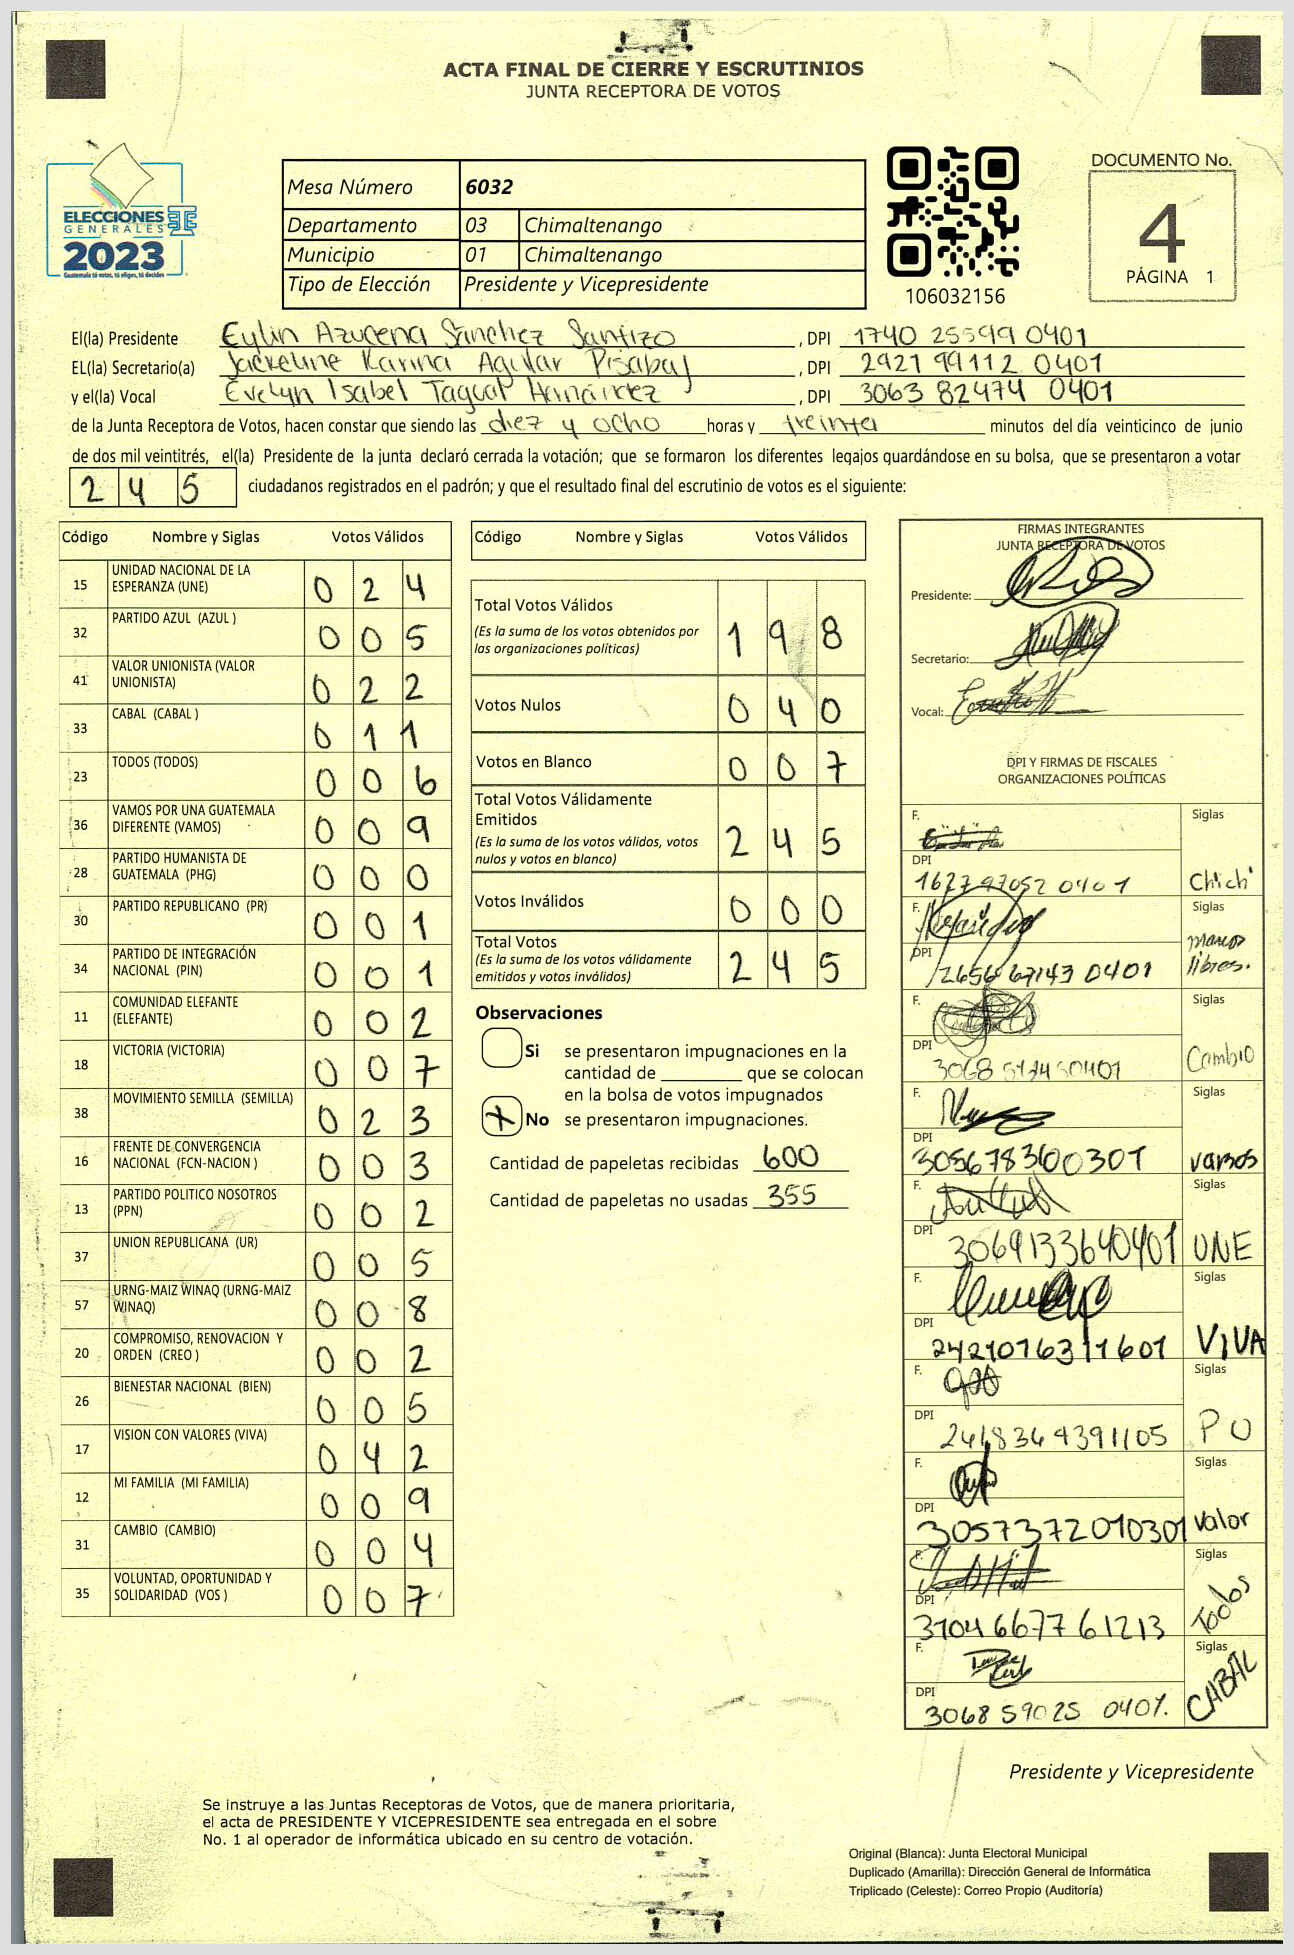 ACTA FINAL DE CIERRE Y ESCRUTINIOS
JUNTA RECEPTORA DE VOTOS
ELECCIONES
GENERALES
2023
Guatemala tú votas, tú eliges, tú decides
Mesa Número 6032
Departamento 03 Chimaltenango
Municipio 01 Chimaltenango
Tipo de Elección Presidente y Vicepresidente
106032156
DOCUMENTO No.
4
PÁGINA 1
El(la) Presidente Eylin Azucena Sánchez Santizo , DPI 1740 25599 0401
EL(la) Secretario(a) Jackeline Karina Aguilar Pisabaj , DPI 2921 99112 0401
y el(la) Vocal Evelyn Isabel Taquat , DPI 3063 82474 0401
de la Junta Receptora de Votos, hacen constar que siendo las diez y ocho horas y treinta minutos del día veinticinco de junio
de dos mil veintitrés, el(la) Presidente de la junta declaró cerrada la votación; que se formaron los diferentes legajos guardándose en su bolsa, que se presentaron a votar
245 ciudadanos registrados en el padrón; y que el resultado final del escrutinio de votos es el siguiente:
Código Nombre y Siglas Votos Válidos
15 UNIDAD NACIONAL DE LA ESPERANZA (UNE) 0 2 4
32 PARTIDO AZUL (AZUL ) 0 0 5
41 VALOR UNIONISTA (VALOR UNIONISTA) 0 2 2
33 CABAL (CABAL ) 0 1 1
23 TODOS (TODOS) 0 0 6
36 VAMOS POR UNA GUATEMALA DIFERENTE (VAMOS) 0 0 9
28 PARTIDO HUMANISTA DE GUATEMALA (PHG) 0 0 0
30 PARTIDO REPUBLICANO (PR) 0 0 1
34 PARTIDO DE INTEGRACIÓN NACIONAL (PIN) 0 0 1
11 COMUNIDAD ELEFANTE (ELEFANTE) 0 0 2
18 VICTORIA (VICTORIA) 0 0 7
38 MOVIMIENTO SEMILLA (SEMILLA) 0 2 3
16 FRENTE DE CONVERGENCIA NACIONAL (FCN-NACION ) 0 0 3
13 PARTIDO POLITICO NOSOTROS (PPN) 0 0 2
37 UNION REPUBLICANA (UR) 0 0 5
57 URNG-MAIZ WINAQ (URNG-MAIZ WINAQ) 0 0 8
20 COMPROMISO, RENOVACION Y ORDEN (CREO ) 0 0 2
26 BIENESTAR NACIONAL (BIEN) 0 0 5
17 VISION CON VALORES (VIVA) 0 4 2
12 MI FAMILIA (MI FAMILIA) 0 0 9
31 CAMBIO (CAMBIO) 0 0 4
35 VOLUNTAD, OPORTUNIDAD Y SOLIDARIDAD (VOS ) 0 0 7
Código Nombre y Siglas Votos Válidos
Total Votos Válidos 1 9 8
(Es la suma de los votos obtenidos por
las organizaciones políticas)
Votos Nulos 0 4 0
Votos en Blanco 0 0 7
Total Votos Válidamente
Emitidos 2 4 5
(Es la suma de los votos válidos, votos
nulos y votos en blanco)
Votos Inválidos 0 0 0
Total Votos 2 4 5
(Es la suma de los votos válidamente
emitidos y votos inválidos)
Observaciones
Si se presentaron impugnaciones en la
cantidad de que se colocan
en la bolsa de votos impugnados
X No se presentaron impugnaciones.
Cantidad de papeletas recibidas 600
Cantidad de papeletas no usadas 355
FIRMAS INTEGRANTES
JUNTA RECEPTORA DE VOTOS
Presidente:
Secretario:
Vocal:
DPI Y FIRMAS DE FISCALES
ORGANIZACIONES POLÍTICAS
F. Siglas
DPI
1627 97052 0401 Chichi
F. Siglas
DPI
2656 67143 0401 libres.
F. Siglas
DPI
3068 Cambio
F. Siglas
DPI
3056783600301 vamos
F. Siglas
DPI
3069133640401 UNE
F. Siglas
DPI
2421016311601 VIVA
F. Siglas
DPI
2418364391105 PU
F. Siglas
DPI
3057372010301 Valor
F. Siglas
DPI
3104 6677 61213 Todos
F. Siglas
DPI
3068 59025 0401. CABAL
Presidente y Vicepresidente
Se instruye a las Juntas Receptoras de Votos, que de manera prioritaria,
el acta de PRESIDENTE Y VICEPRESIDENTE sea entregada en el sobre
No. 1 al operador de informática ubicado en su centro de votación.
Original (Blanca): Junta Electoral Municipal
Duplicado (Amarilla): Dirección General de Informática
Triplicado (Celeste): Correo Propio (Auditoría)